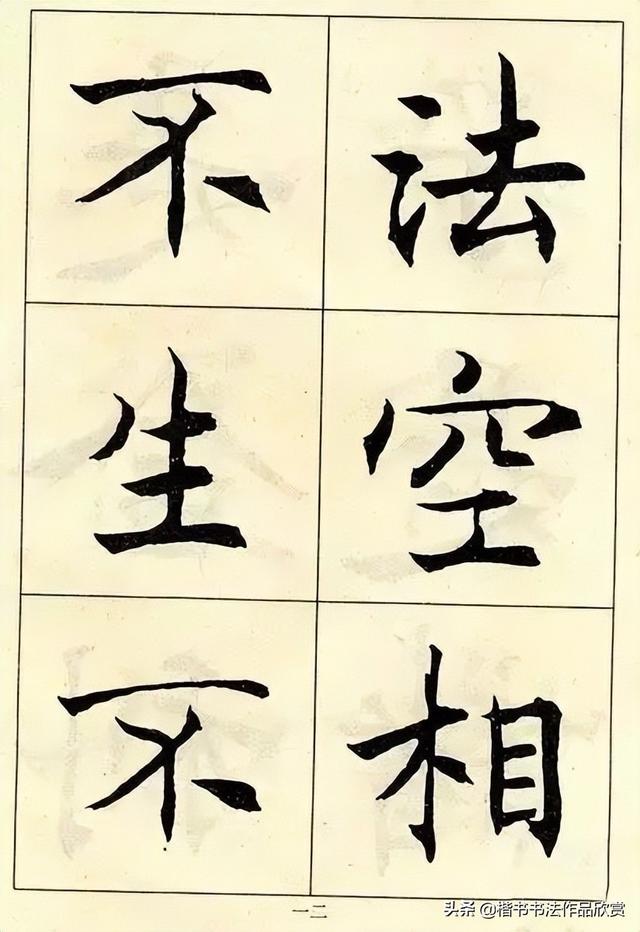 法空相
不生不
一二
头条 @楷书书法作品欣赏